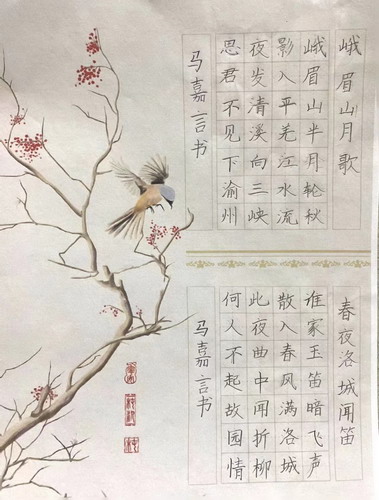 峨眉山月歌
峨眉山半月轮秋
影入平羌江水流
夜发清溪向三峡
思君不见下渝州
马嘉言书
春夜洛城闻笛
谁家玉笛暗飞声
散入春风满洛城
此夜曲中闻折柳
何人不起故园情
马嘉言书